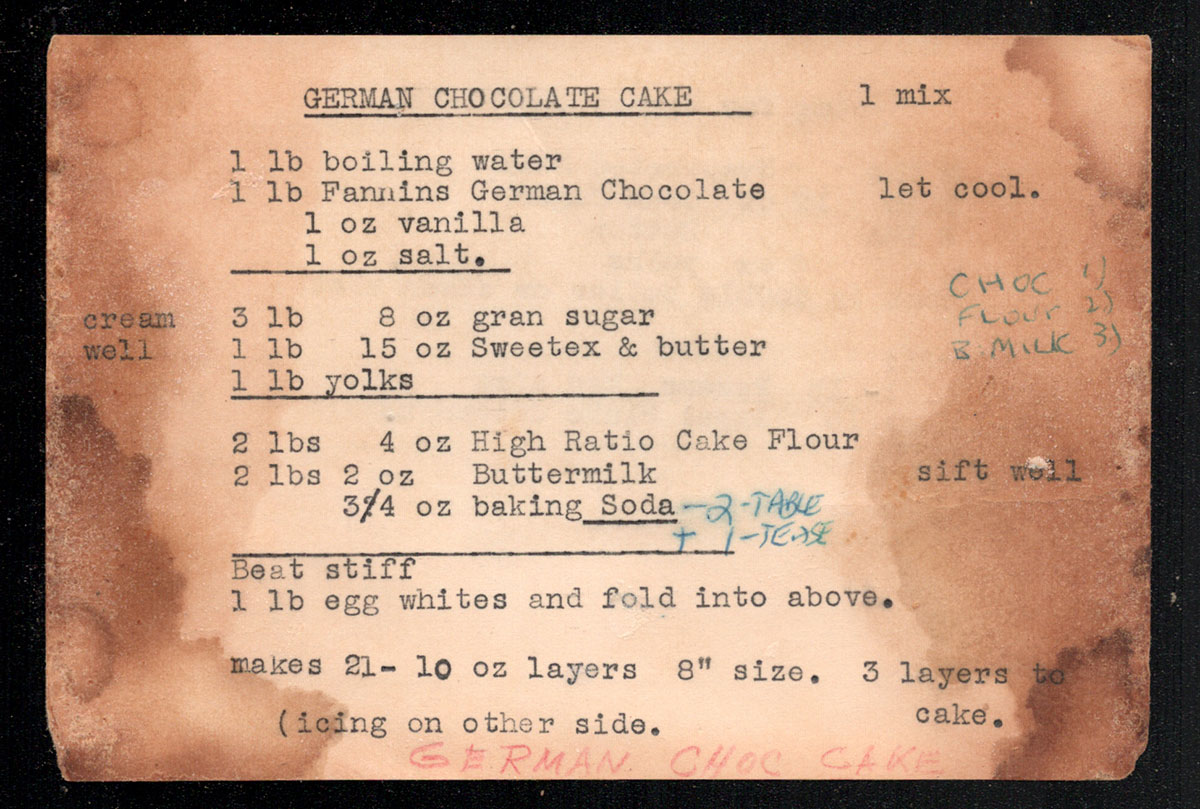 GERMAN CHOCOLATE CAKE 1 mix
1 lb boiling water
1 lb Fannins German Chocolate let cool.
1 oz vanilla
1 oz salt.
CHOC 1)
FLOUR 2)
B. MILK 3)
cream 3 lb 8 oz gran sugar
well 1 lb 15 oz Sweetex & butter
1 lb yolks
2 lbs 4 oz High Ratio Cake Flour
2 lbs 2 oz Buttermilk sift well
3/4 oz baking Soda - 2 - TABLE
+ 1 - TEASE
Beat stiff
1 lb egg whites and fold into above.
makes 21- 10 oz layers 8" size. 3 layers to
cake.
(icing on other side.
GERMAN CHOC CAKE